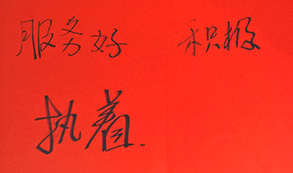 服务好 积极
执着.